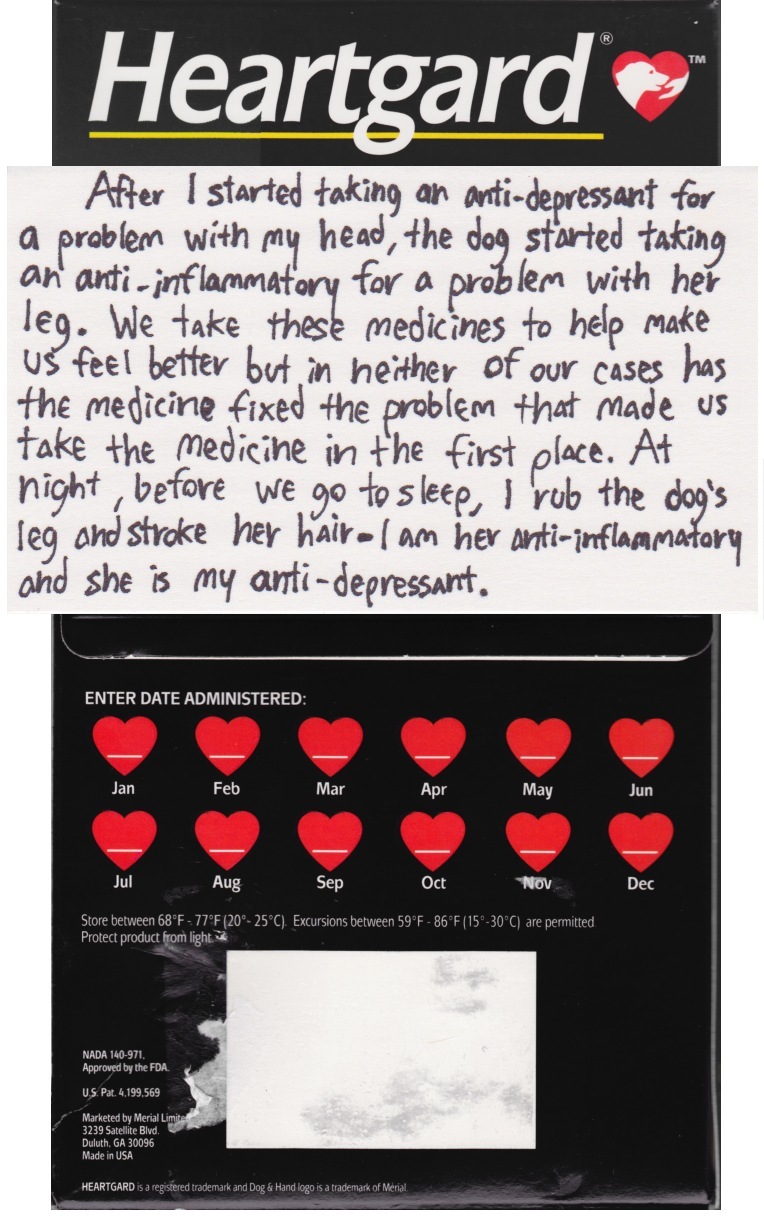 Heartgard® ™
After I started taking an anti-depressant for
a problem with my head, the dog started taking
an anti-inflammatory for a problem with her
leg. We take these medicines to help make
us feel better but in neither of our cases has
the medicine fixed the problem that made us
take the medicine in the first place. At
night, before we go to sleep, I rub the dog's
leg and stroke her hair-I am her anti-inflammatory
and she is my anti-depressant.
ENTER DATE ADMINISTERED:
Jan Feb Mar Apr May Jun
Jul Aug Sep Oct Nov Dec
Store between 68°F - 77°F (20°- 25°C). Excursions between 59°F - 86°F (15°-30°C) are permitted
Protect product from light.
NADA 140-971,
Approved by the FDA.
U.S. Pat. 4,199,569
Marketed by Merial
3239 Satellite Blvd.
Duluth, GA 30096
Made in USA
HEARTGARD is a registered trademark and Dog & Hand logo is a trademark of Merial.